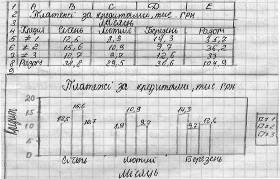 A B C D E
1 Платежі за кредитами, тис грн
2 Місяць
4 Кредит Січень Лютий Березень Разом
5 # 1 12,5 8,9 14,3 35,7
6 # 2 15,6 10,9 9,7 36,2
7 # 3 10,7 9,7 12,6 33
8 Разом 38,8 29,5 36,6 104,9
Платежі за кредитами, тис грн
20
15
10
5
0
Кредит
12,5 15,6 10,7 8,9 10,9 9,7 14,3 9,7 12,6
Січень Лютий Березень
Місяць
# 1
# 2
# 3